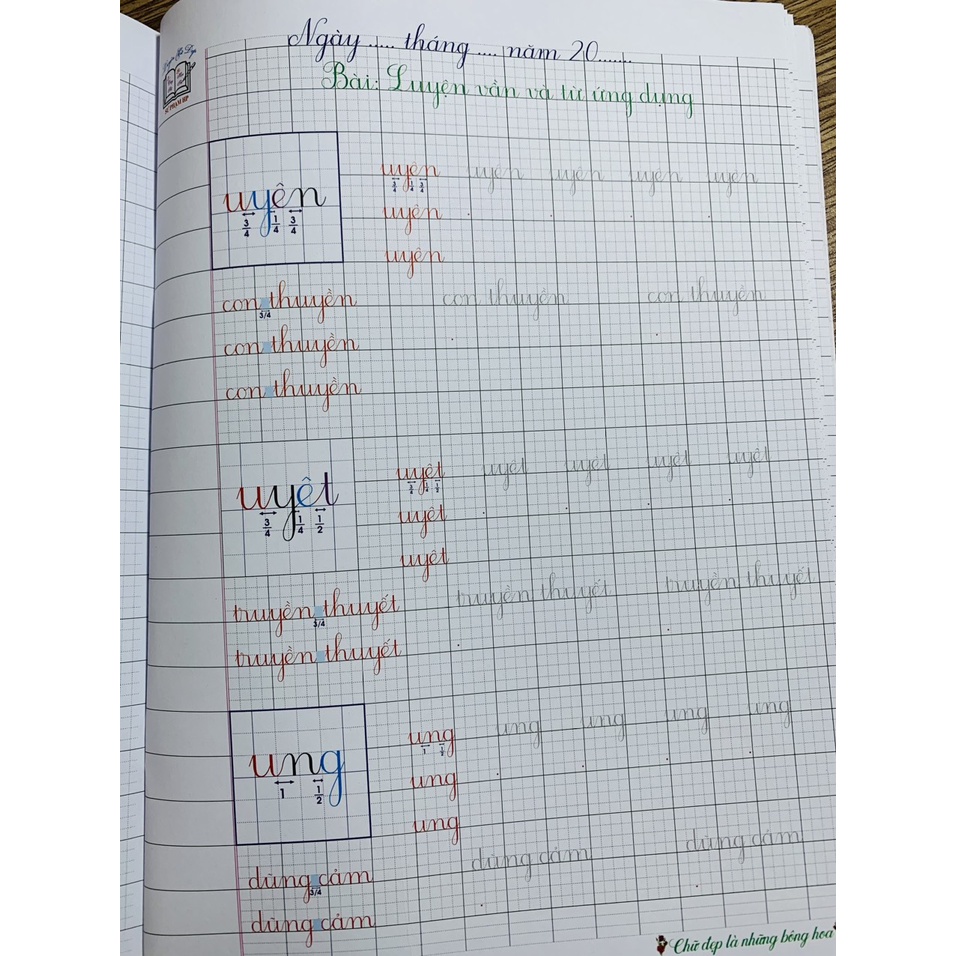 Ngày ..... tháng .... năm 20.......
Bài: Luyện vần và từ ứng dụng
SƯ PHẠM HP
uyên uyên uyên uyên uyên uyên
3/4 1/4 3/4 3/4 1/4 3/4
uyên
uyên
con thuyền con thuyền con thuyền
3/4
con thuyền
con thuyền
uyêt uyêt uyêt uyêt uyêt uyêt
3/4 1/4 1/2 3/4 1/4 1/2
uyêt
uyêt
truyền thuyết truyền thuyết truyền thuyết
3/4
truyền thuyết
ung ung ung ung ung ung
1 1/2 1 1/2
ung
ung
dũng cảm dũng cảm dũng cảm
3/4
dũng cảm
Chữ đẹp là những bông hoa